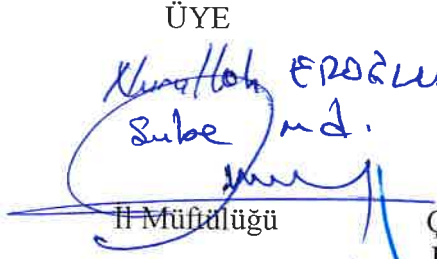 ÜYE
Nurullah EROĞLU
Şube md.
İl Müftülüğü